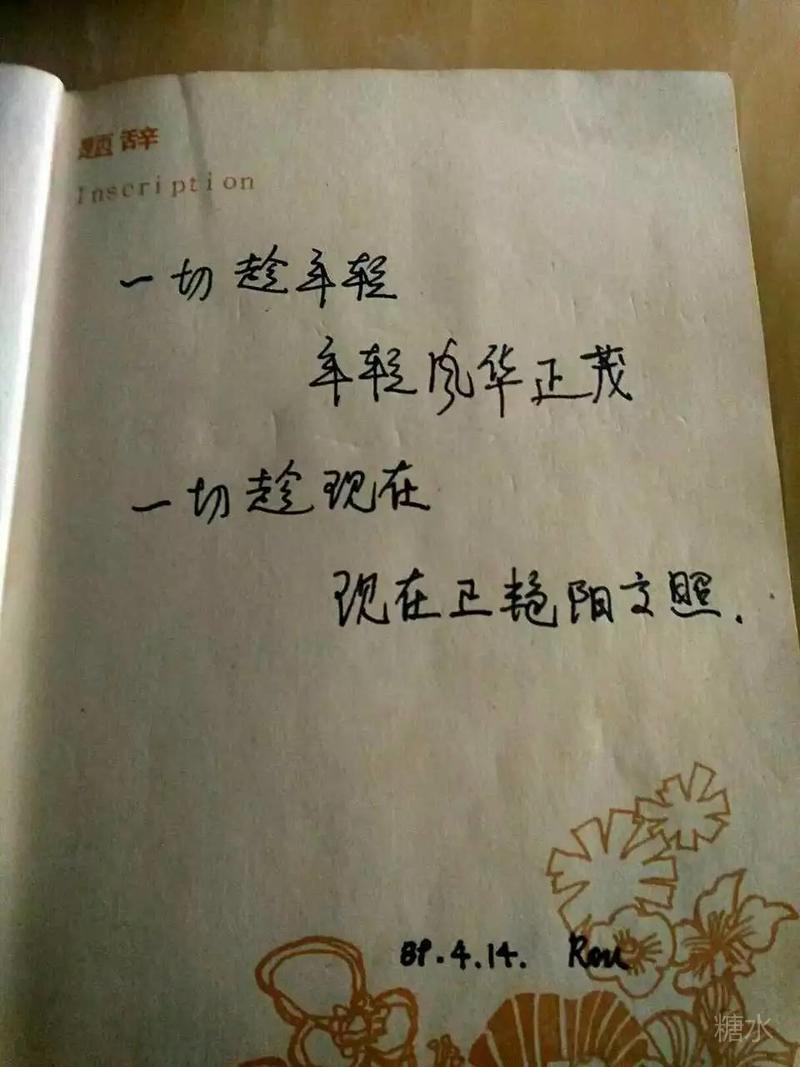 题辞
Inscription
一切趁年轻
年轻风华正茂
一切趁现在
现在正艳阳高照.
89.4.14.
糖水